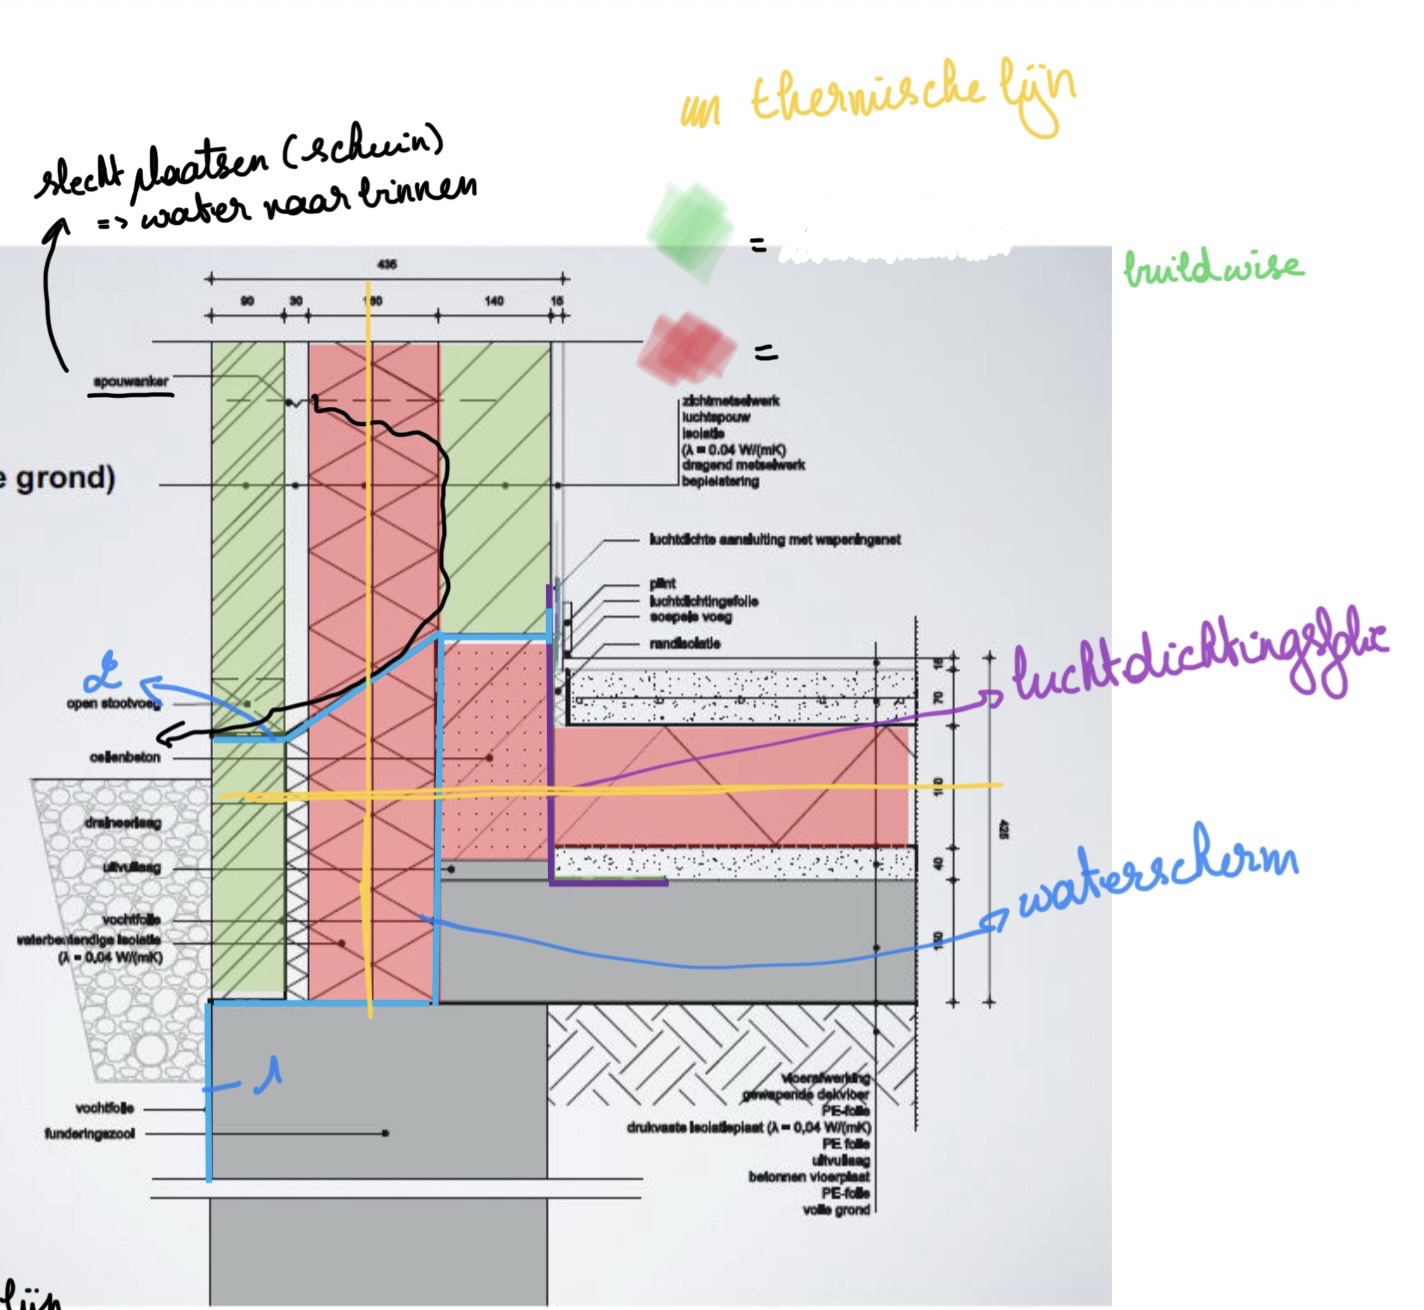 un thermische lijn
slecht plaatsen (schuin)
=> water naar binnen
=
buildwise
435
90 30 180 140 15
=
spouwanker
zichtmetselwerk
luchtspouw
isolatie
(λ = 0.04 W/(mK)
dragend metselwerk
bepleistering
e grond)
luchtdichte aansluiting met wapeningsnet
plint
luchtdichtingsfolie
soepele voeg
randisolatie
luchtdichtingsfolie
2
open stootvoeg
cellenbeton
draineerlaag
uitvullaag
vochtfolie
waterbestendige isolatie
(λ = 0.04 W/(mK)
15
70
425
40
waterscherm
1
vochtfolie
funderingszool
vloerafwerking
gewapende dekvloer
PE-folie
drukvaste isolatieplaat (λ = 0,04 W/(mK)
PE folie
uitvullaag
betonnen vloerplaat
PE-folie
volle grond
lijn